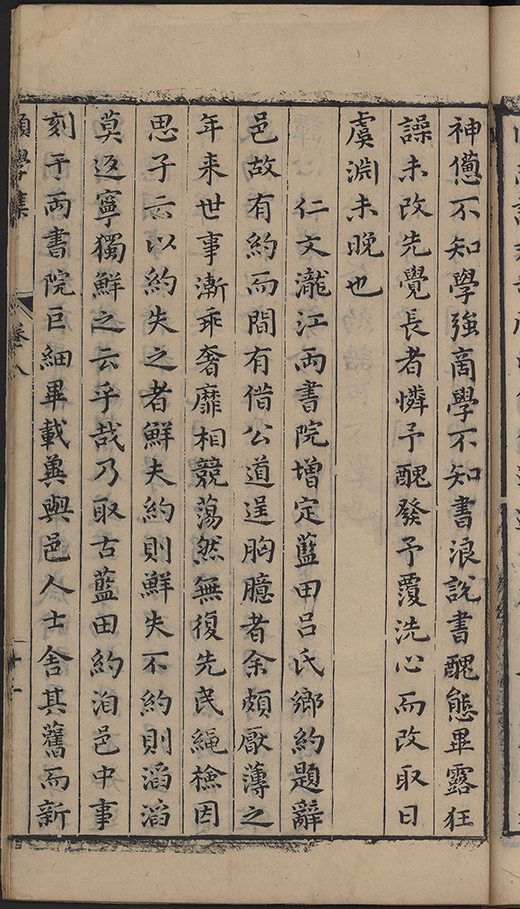 神憊不知學強商學不知書浪說書醜態畢露狂
譟未改先覺長者憐予醜發予覆洗心而改取日
虞淵未晚也
仁文瀧江兩書院增定藍田呂氏鄉約題辭
邑故有約而間有借公道逞胸臆者余頗厭薄之
年来世事漸乖奢靡相競蕩然無復先民繩檢因
思子云以約失之者鮮夫約則鮮失不約則滔滔
莫返寧獨鮮之云乎哉乃取古藍田約洎邑中事
刻于兩書院巨細畢載兾與邑人士舍其舊而新
願學集
卷八